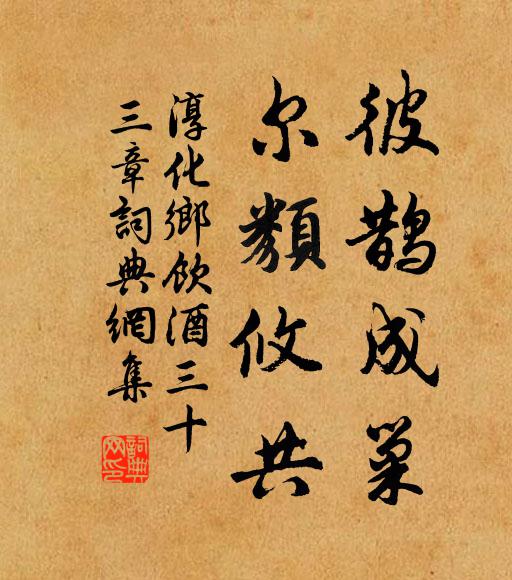 彼鹊成巢
尔類攸共
淳化鄉飲酒三十
三章詞典網集
詞典网印